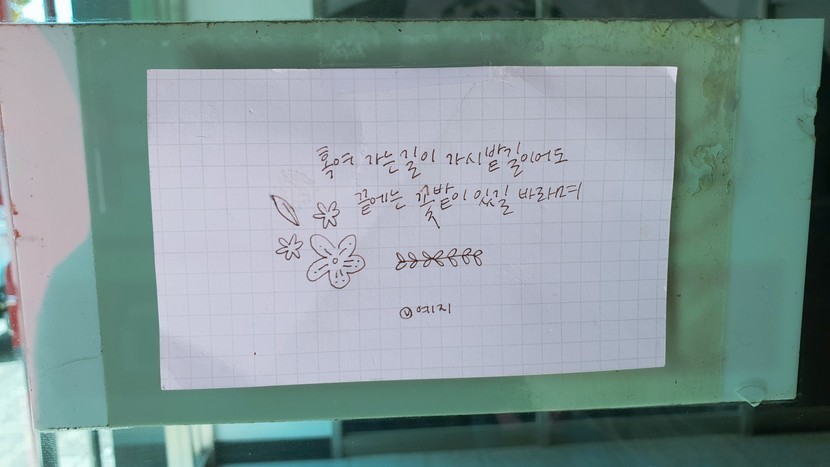 혹여 가는길이 가시밭길이어도
끝에는 꽃밭이 있길 바라며
예지